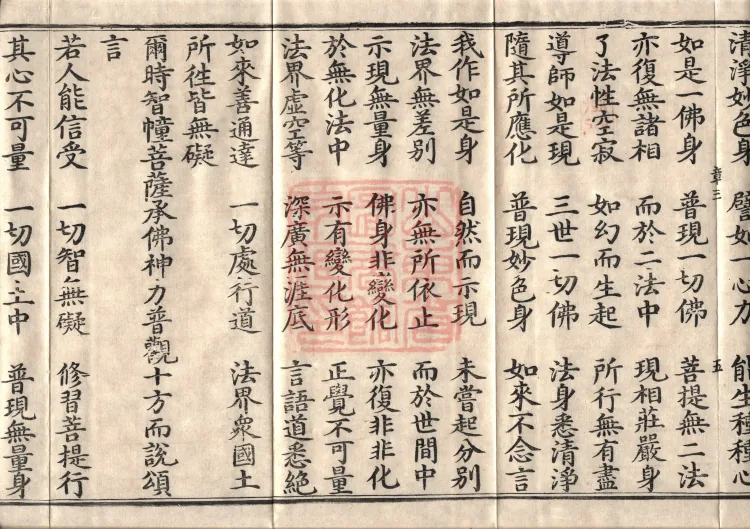 清淨妙色身 譬如一心力 能生種種心
如是一佛身 普現一切佛 菩提無二法
亦復無諸相 而於二法中 現相莊嚴身
了法性空寂 如幻而生起 所行無有盡
導師如是現 三世一切佛 法身悉清淨
隨其所應化 普現妙色身 如來不念言
我作如是身 自然而示現 未嘗起分別
法界無差別 亦無所依止 而於世間中
示現無量身 佛身非變化 亦復非非化
於無化法中 示有變化形 正覺不可量
法界虛空等 深廣無涯底 言語道悉絶
如來善通達 一切處行道 法界衆國土
所往皆無礙
爾時智幢菩薩承佛神力普觀十方而說頌
言
若人能信受 一切智無礙 修習菩提行
其心不可量 一切國土中 普現無量身
章三
五